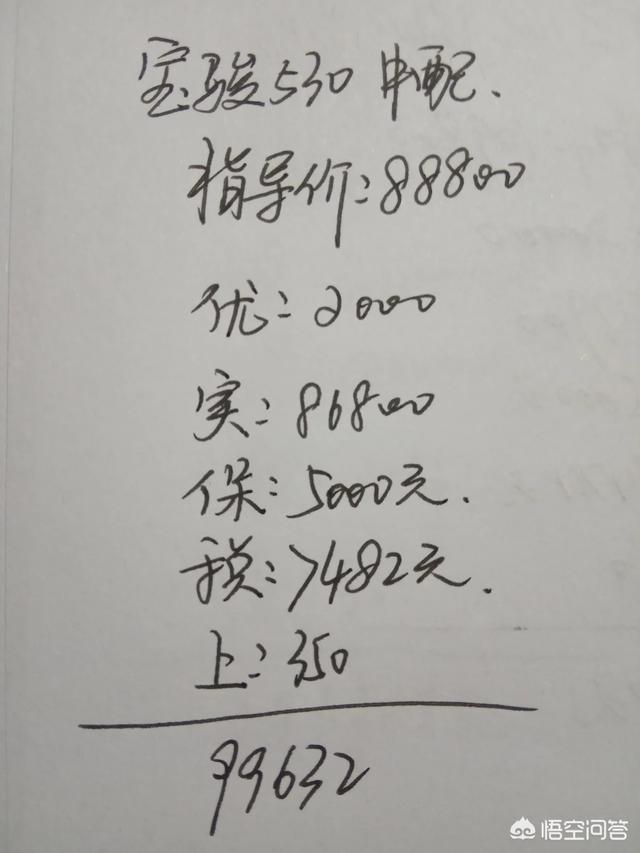 宝骏530 中配.
指导价:88800
优:2000
实:86800
保:5000元.
税:7482元.
上:350
99632
悟空问答